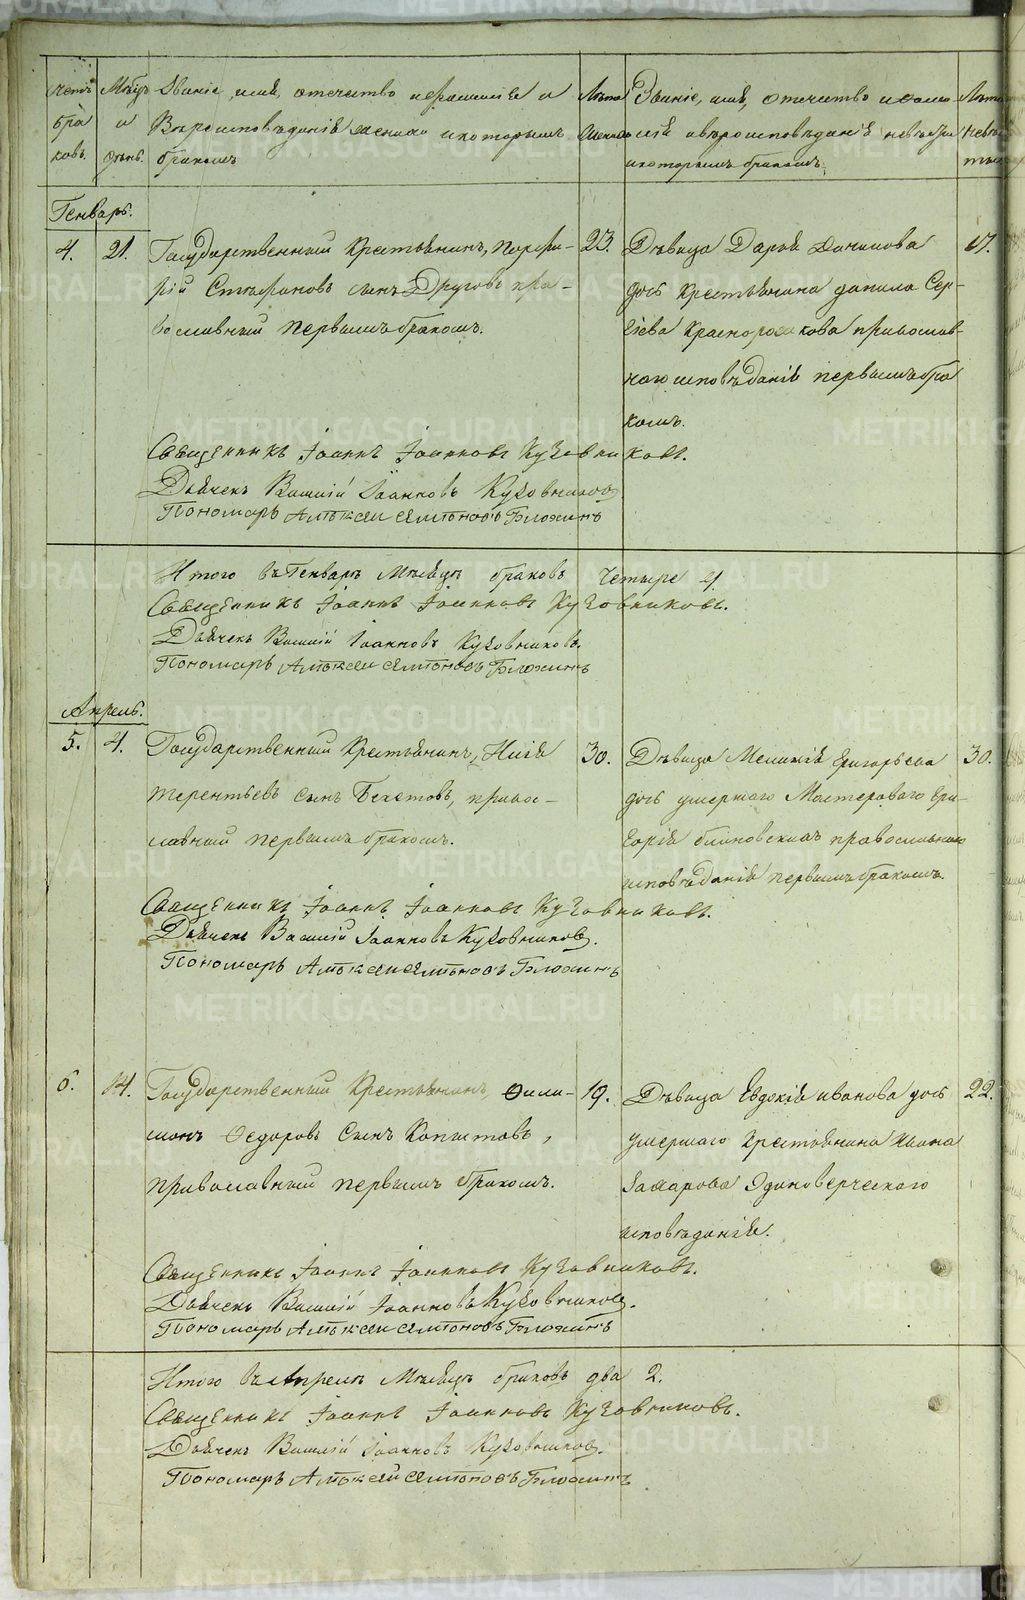 METRIKI.GASO-URAL.RU
Четъ Мѣсц. Званіе, имя, отечество и фамилія и Лѣта Званіе, имя, отечество и фами- Лѣта
бра и Вѣроисповѣданіе жениха и которымъ жениха лія и вѣроисповѣданіе невѣсты невѣс
ковъ. день. бракомъ и которымъ бракомъ. ты
Генварь.
4. 21. Государственный Крестьянинъ, Порфи- 23. Дѣвица Дарья Данилова 17.
рій Стефановъ сынъ Друговъ пра- дочь Крестьянина Данила Сер-
вославный первымъ бракомъ. гіева православ-
наго исповѣданія первымъ бра
комъ.
Священникъ Іоаннъ Іоанновъ Кузовниковъ.
Дьячекъ Василій Іоанновъ Кузовниковъ
Пономарь Алексѣй Блохинъ
Итого въ Генварѣ Мѣсяцѣ браковъ Четыре 4.
Священникъ Іоаннъ Іоанновъ Кузовниковъ.
Дьячекъ Василій Іоанновъ Кузовниковъ.
Пономарь Алексѣй Блохинъ
Апрель.
5. 4. Государственный Крестьянинъ, 30. Дѣвица Меланія Григорьева 30.
Терентьевъ сынъ Бекетовъ, право- дочь умершаго Мастероваго Гри-
славный первымъ бракомъ. горія православнаго
исповѣданія первымъ бракомъ.
Священникъ Іоаннъ Іоанновъ Кузовниковъ.
Дьячекъ Василій Іоанновъ Кузовниковъ.
Пономарь Алексѣй Блохинъ
6. 14. Государственный Крестьянинъ, Фили- 19. Дѣвица Евдокія Иванова дочь 22.
монъ Ѳедоровъ Сынъ Копытовъ, умершаго Крестьянина Ивана
православный первымъ бракомъ. Захарова Единоверческаго
исповѣданія.
Священникъ Іоаннъ Іоанновъ Кузовниковъ.
Дьячекъ Василій Іоанновъ Кузовниковъ.
Пономарь Алексѣй Блохинъ
Итого въ Апрелѣ Мѣсяцѣ браковъ два 2.
Священникъ Іоаннъ Іоанновъ Кузовниковъ.
Дьячекъ Василій Іоанновъ Кузовниковъ.
Пономарь Алексѣй Блохинъ